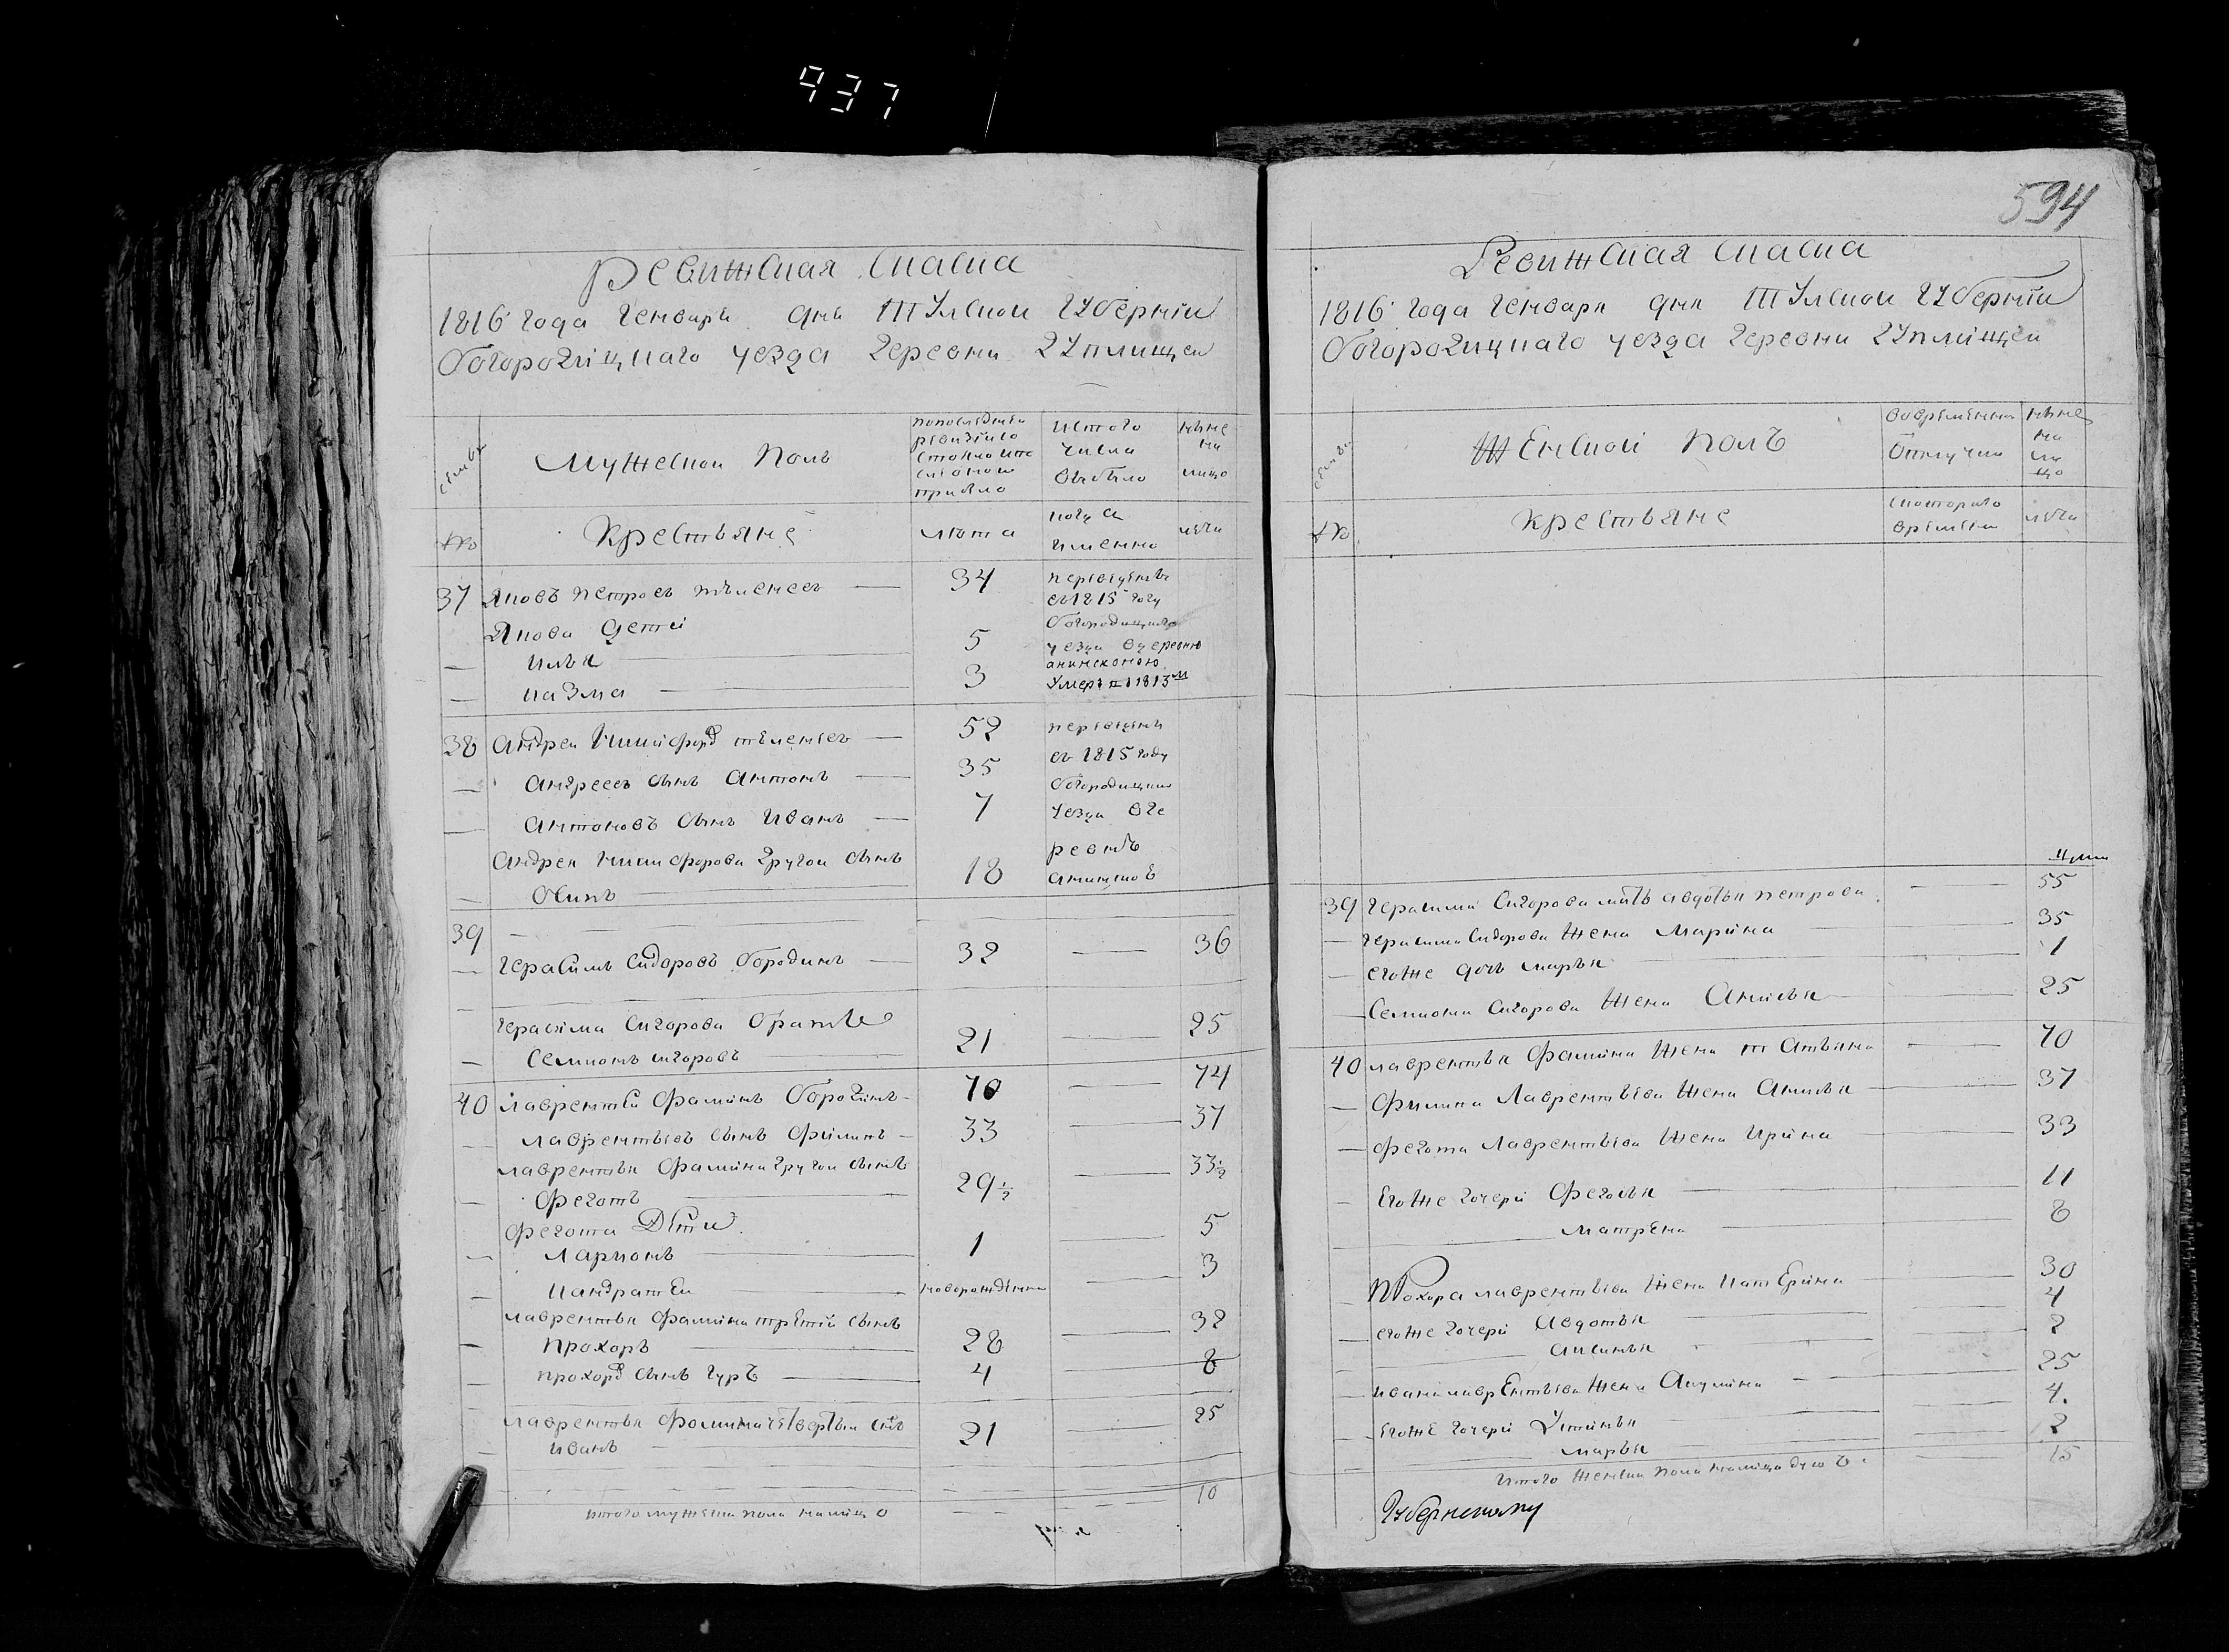 937
594
Ревижская скаска
1816 года Генваря дня Тулской губернiи
богородицкаго уезда деревни Гуплищей
семьи
Мужеской полъ
попоследней
ревизiи
состояло и по
сле оной
прибыло
изтого
числа
выбыло
ныне
на
лицо
№
крестьяне
лета
когда
имянно
лета
37 Яковъ петровъ 34
переведенъ
въ 1815 году
Якова дети
богородицкаго
илья 5
уезда вдеревню
казма 3
умеръ в 1813м
38 Андрей Никифоровъ 52
переведены
въ 1815 году
Андреевъ сынъ Антонъ 35
богородицкаго
Антоновъ сынъ Иванъ 7
уезда вде
Андрея Никифорова другой сынъ
ревню
Осипъ 18
39
Герасимъ Сидоровъ бородинъ 32 36
Герасима Сидорова братъ
Семионъ сидоровъ 21 25
40 лаврентей фаминъ бородинъ 70 74
лаврентьевъ сынъ филипъ 33 37
лаврентья фамина другой сынъ
федотъ 29½ 33½
федота Дети
Ларионъ 1 5
кандратей новорожденной 3
лаврентья фамина третiй сынъ
прохоръ 28 32
прохоровъ сынъ гуръ 4 8
лаврентья фомина четвертый снъ
иванъ 21 25
итого мужеска пола налицо 10
Ревижская скаска
1816 года Генваря дня Тулской губернiи
богородицкаго уезда деревни Гуплищей
семьи
Женской полъ
вовременной
отлучки
ныне
на
ли
цо
№
крестьяне
скоторого
времени
лета
39 Герасима Сидорова мать авдотья петрова 55
Герасима Сидорова жена Марина 35
егоже дочь марья 1
Семиона Сидорова жена Анисья 25
40 лаврентья фамина жена татьяна 70
филипа Лаврентьева жена Анисья 37
федота Лаврентьева жена Ирина 33
Егоже дочери федосья 11
матрена 8
Прохора лаврентьева жена катерина 30
егоже дочери Авдотья 4
аксинья 2
ивана лаврентьева жена Акулина 25
егоже дочери Устинья 4.
марья 2
итого женска пола налицо душъ 15
Губернскому